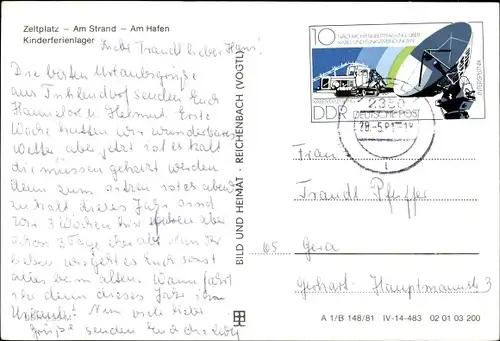 Zeltplatz – Am Strand – Am Hafen
Kinderferienlager
Liebe Traudl lieber Hans!
Die besten Urlaubsgrüße
aus senden Euch
Hannelore u. Helmut. Erste
Woche hatten wir wunderbares
Wetter aber jetzt ist es kalt
die müssen geheizt werden
denn zum sitzen ist es abends
zu kalt dieses Jahr sind
wir 3 Wochen hier aber
schon 3 Tage
wie geht es Euch sonst
alles beim alten. Wann fahrt
ihr denn dieses Jahr in
Urlaub? Nun viele liebe
Grüße senden Euch
BILD UND HEIMAT · REICHENBACH (VOGTL)
10
NACHRICHTENÜBERTRAGUNG ÜBER
KABEL UND FUNKVERBINDUNGEN
DDR
DEUTSCHE POST
Frau
Traudl Pfeiffer
65 Gera
Gerhart-Hauptmannstr. 3
A 1/B 148/81 IV-14-483 02 01 03 200